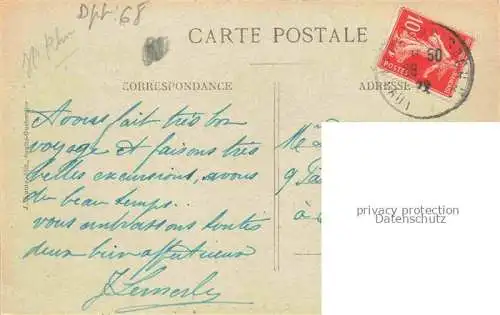 Dpt. 68
CARTE POSTALE
CORRESPONDANCE
ADRESSE
Avons fait très bon
voyage et faisons très
belles excursions, avons
du beau temps..
vous embrassons toutes
deux bien affectueux
M
9
à
10c
POSTES
50
22
privacy protection
Datenschutz